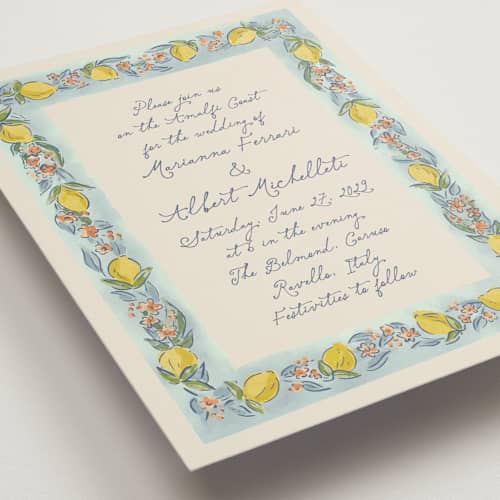 Please join us
on the Amalfi Coast
for the wedding of
Marianna Ferrari
&
Albert Michelleti
Saturday, June 27, 2029
at 6 in the evening
The Belmond, Caruso
Ravello, Italy
Festivities to follow